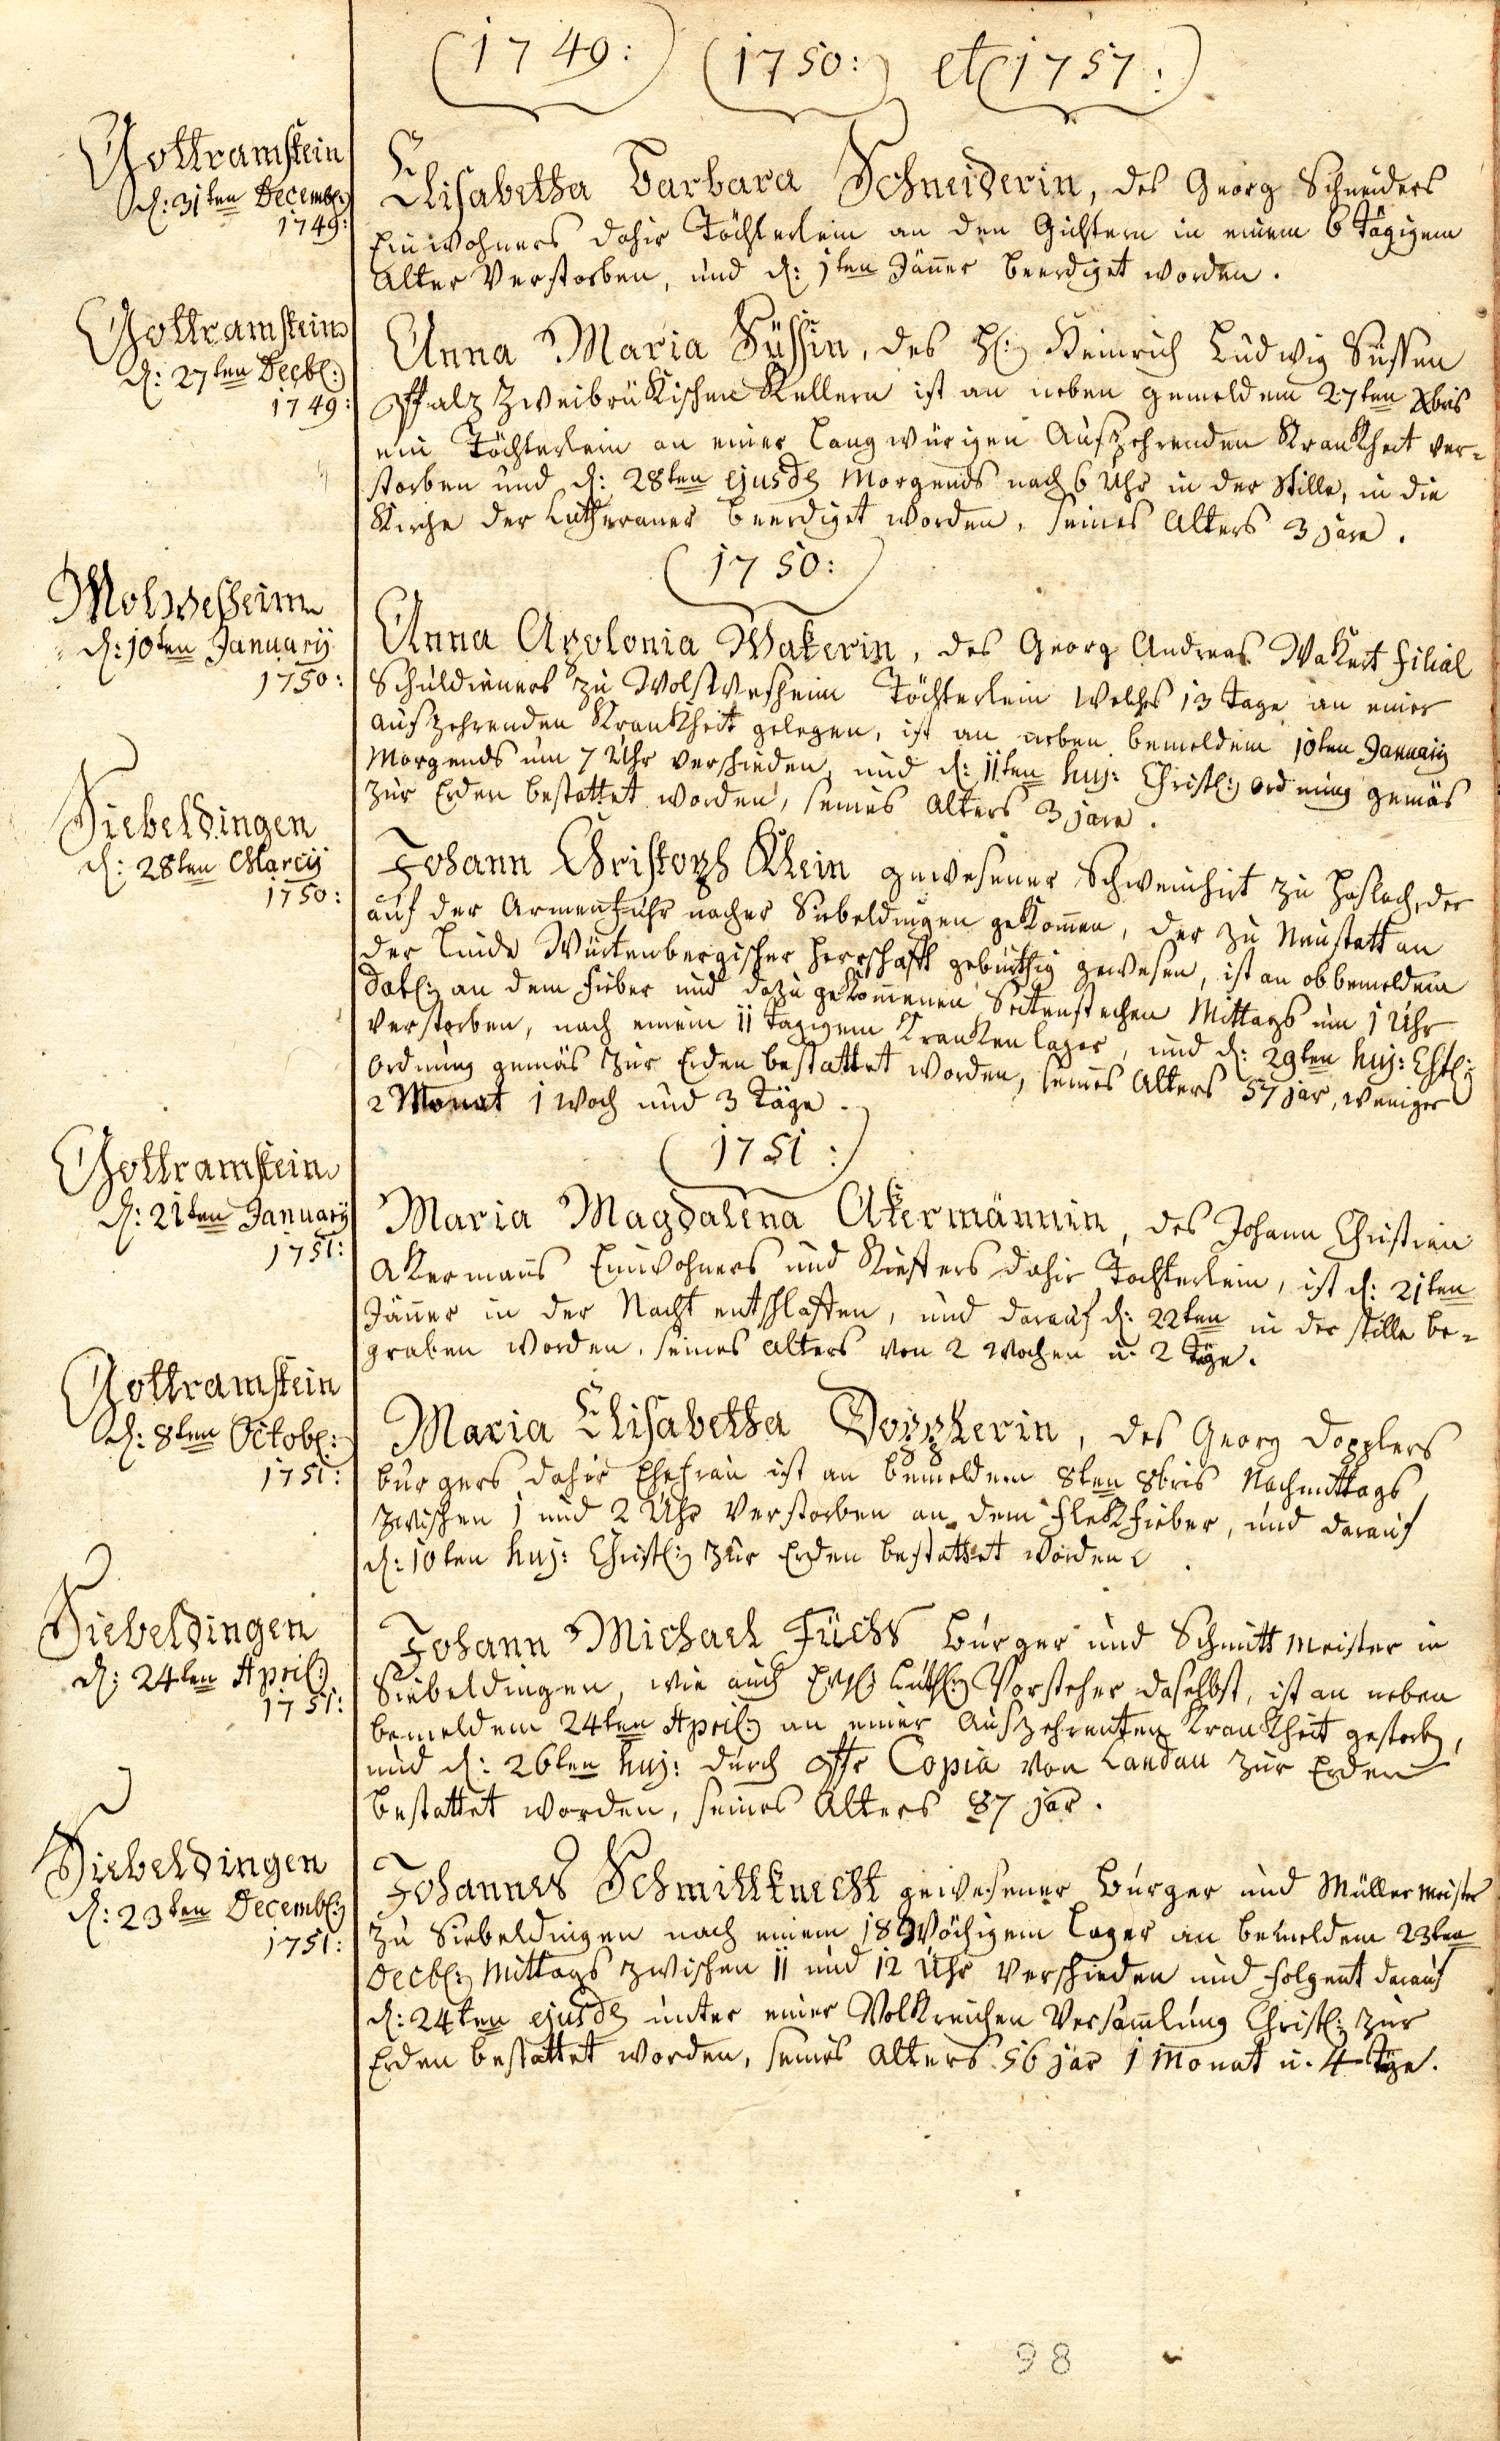 1749: 1750: et 1751:
Gottramstein
d: 31ten Decemb:
1749:
Elisabetha Barbara Schneiderin, des Georg Schneiders
Einwohners dahir Töchterlein an den Gichtern in einem 6 Tägigem
Alter Verstorben, und d: 1ten Jäner beerdiget worden.
Gottramstein
d: 27ten Decb:
1749:
Anna Maria Süssin, des H: Heinrich Ludwig Süssen
Pfalz Zweibrükischen Kellern ist an neben gemeldem 27ten Xbris
ein Töchterlein an einer langwürigen Auszehrenden Krankheit ver-
storben und d: 28ten ejusd Morgends nach 6 Uhr in der Stille, in die
Kirche der Lutheraner beerdiget worden, seines Alters 3 jare.
1750:
d: 10ten January
1750:
Anna Apolonia Wakerin, des Georg Andreas Wakert filial
Schuldieners zu Töchterlein welches 13 Tage an einer
auszehrenden Krankheit gelegen, ist an neben bemeldem 10ten January
Morgends um 7 Uhr verschieden, und d: 11ten huj: Christl: ordnung gemäs
zur Erden bestattet worden, seines Alters 3 jare.
Siebeldingen
d: 28ten Marcij
1750:
Johann Christoph Klein gewesener Schweinhirt zu Hasloch, der
auf der Armenfuhr nacher Siebeldingen gekomen, der zu Neustatt an
der Linde Würtenbergischer Herrschafft gebürthig gewesen, ist an obbemeldem
dat: an dem Fieber und dazu gekommenen Seitenstechen Mittags um 1 Uhr
verstorben, nach einem 11 tägigem Krankenlager, und d: 29ten huj: Chstl:
ordnung gemäs zur Erden bestattet worden, seines Alters 57 jar, weniger
2 Monat 1 Woch und 3 Täge.
1751:
Gottramstein
d: 21ten January
1751:
Maria Magdalena Akermännin, des Johann Christian
Akermans Einwohners und Kieffers dahir Tochterlein, ist d: 21ten
Jäner in der Nacht entschlaffen, und darauf d: 22ten in der stille be-
graben worden, seines alters von 2 Wochen u. 2 Täge.
Gottramstein
d: 8ten Octob:
1751:
Maria Elisabetha Dopplerin, des Georg Dopplers
burgers dahir Ehefrau ist an bemeldem 8ten 8bris Nachmittags
zwischen 1 und 2 Uhr Verstorben an dem Flekfieber, und darauf
d: 10ten huj: Christl: zur Erden bestattet worden.
Siebeldingen
d: 24ten April:
1751:
Johann Michael Fuchs Bürger und Schmitt Meister in
Siebeldingen, wie auch Luth: Vorsteher daselbst, ist an neben
bemeldem 24ten April: an einer Auszehrenten Krankheit gestorb,
und d: 26ten huj: durch Pfr Copia von Landau zur Erden
bestattet worden, seines Alters 87 jar.
Siebeldingen
d: 23ten Decemb:
1751:
Johannes Schmittknecht gewesener Bürger und Müller Meister
zu Siebeldingen nach einem 18 Wöchigem Lager an bemeldem 23ten
Decb: Mittags zwischen 11 und 12 Uhr Verschieden und folgent darauf
d: 24ten ejusd unter einer Volkreichen Versamlung Christl: zur
Erden bestattet worden, seines Alters 56 jar 1 Monat u. 4 Täge.
98